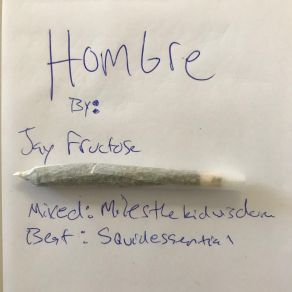 Hombre
By:
Jay Fructose
Mixed: Milesthekidwisdom
Beat: Squidessential